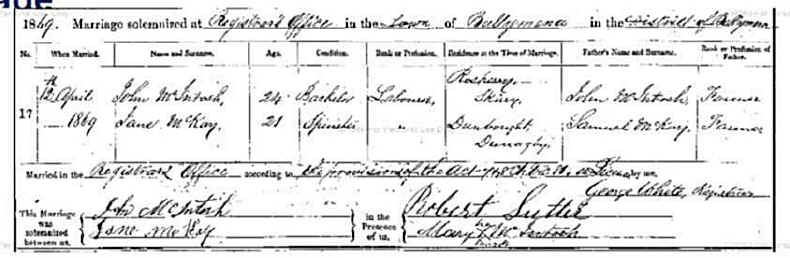 1869. Marriage solemnized at Registrar's Office in the Town of Ballymena in the District of Ballymena
No. When Married. Name and Surname. Age. Condition. Rank or Profession. Residence at the Time of Marriage. Father's Name and Surname. Rank or Profession of Father.
17 12th April 1869 John McIntosh 24 Bachelor Labourer Skerry John McIntosh Farmer
Jane McKay 21 Spinster " Dunbought Dunaghy Samuel McKay Farmer
Married in the Registrar's Office according to the provisions of the Act by me,
George White, Registrar
This Marriage was solemnized between us, John McIntosh Jane McKay in the Presence of us, Robert Mary her mark McIntosh